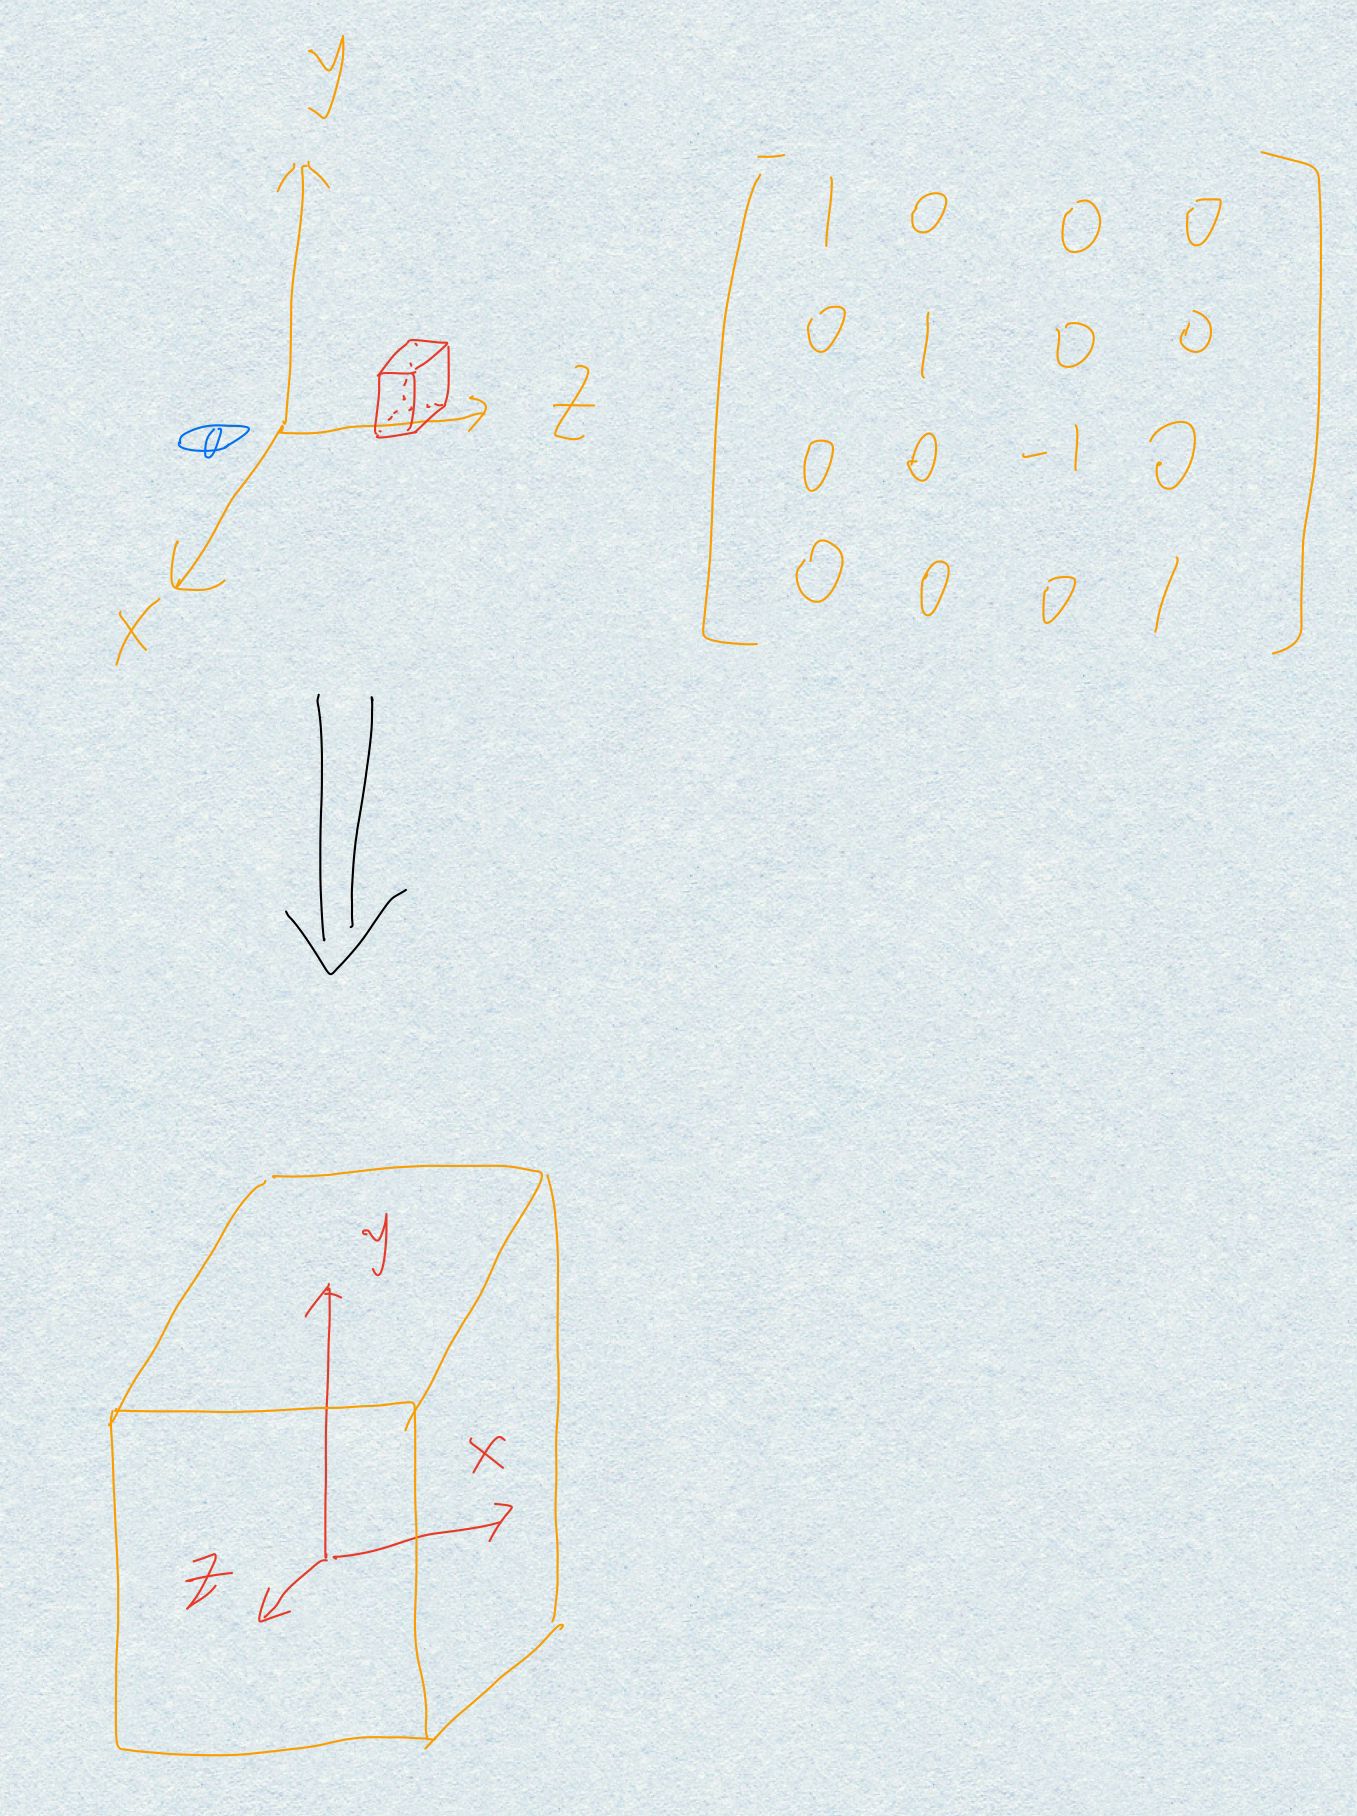 y
1 0 0 0
0 1 0 0
z
0 0 -1 0
0 0 0 1
x
y
x
z